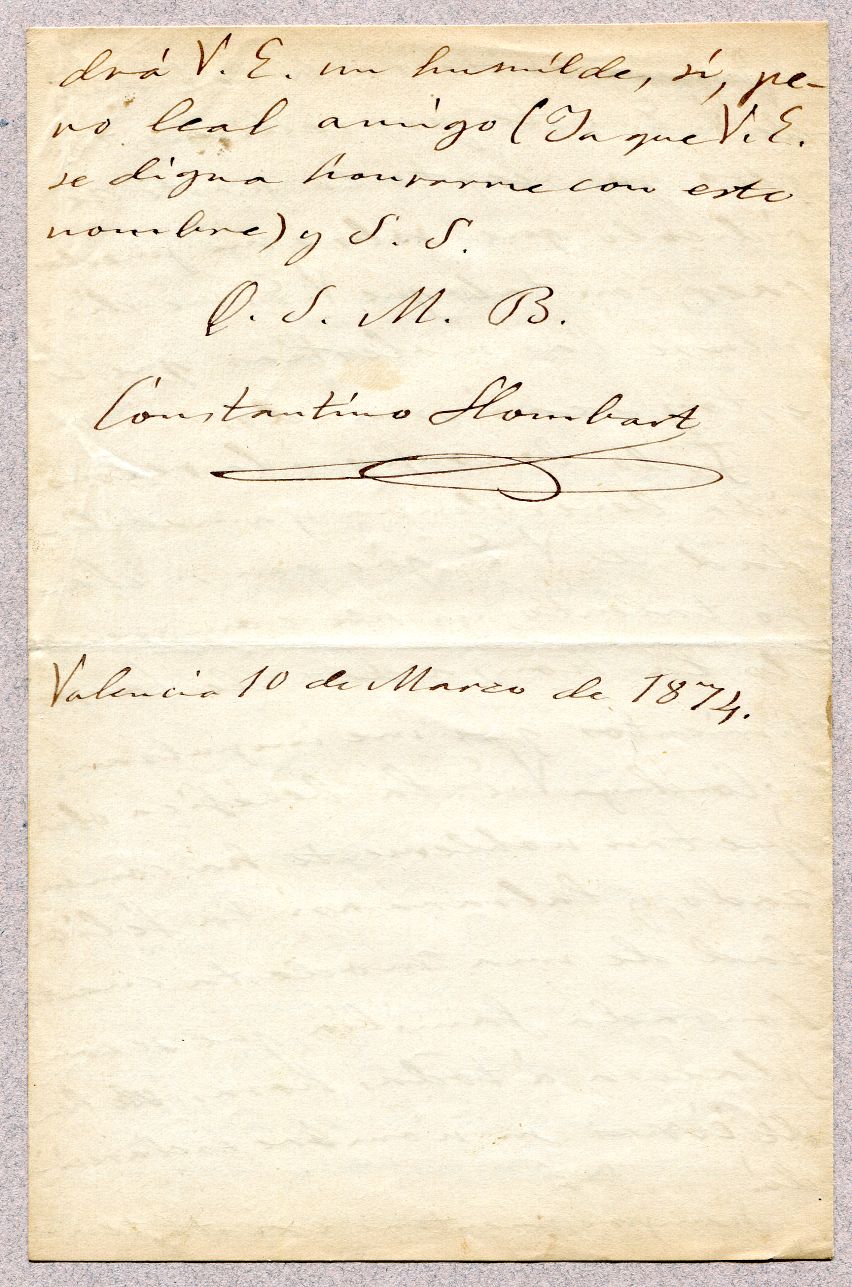 drá V. E. un humilde, sí, pe-
ro leal amigo (Ya que V. E.
se digna honrarme con este
nombre) y S. S.
Q. S. M. B.
Constantino Llombart
Valencia 10 de Marzo de 1874.